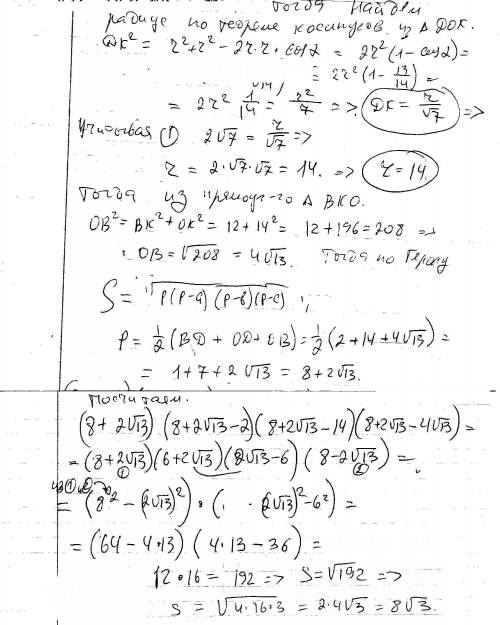 Тогда найдём
радиус по теореме косинусов из Δ DOK.
DK² = r²+r² − 2r·r · cos α = 2r²(1 − cos α) =
= 2r²(1 − 13/14) =
= 2r² 1/14 = r²/7 => DK = r/√7 =>
Учитывая ① 2√7 = r/√7 =>
r = 2·√7·√7 = 14. => r = 14.
Тогда из прямоуг-го Δ BKO.
OB² = BK² + OK² = 12 + 14² = 12 + 196 = 208 =>
OB = √208 = 4√13. Тогда по Герону
S = √p(p−a)(p−b)(p−c) ;
P = 1/2 (BD + OD + OB) = 1/2 (2 + 14 + 4√13) =
= 1 + 7 + 2√13 = 8 + 2√13.
Посчитаем.
(8 + 2√13) (8 + 2√13 − 2)(8 + 2√13 − 14)(8 + 2√13 − 4√13) =
= (8 + 2√13)(6 + 2√13)(2√13 − 6)(8 − 2√13) =
① ②
= (8² − (2√13)²) · ((2√13)² − 6²) =
= (64 − 4·13) (4·13 − 36) =
12 · 16 = 192 => S = √192 =>
S = √4·16·3 = 2·4√3 = 8√3.